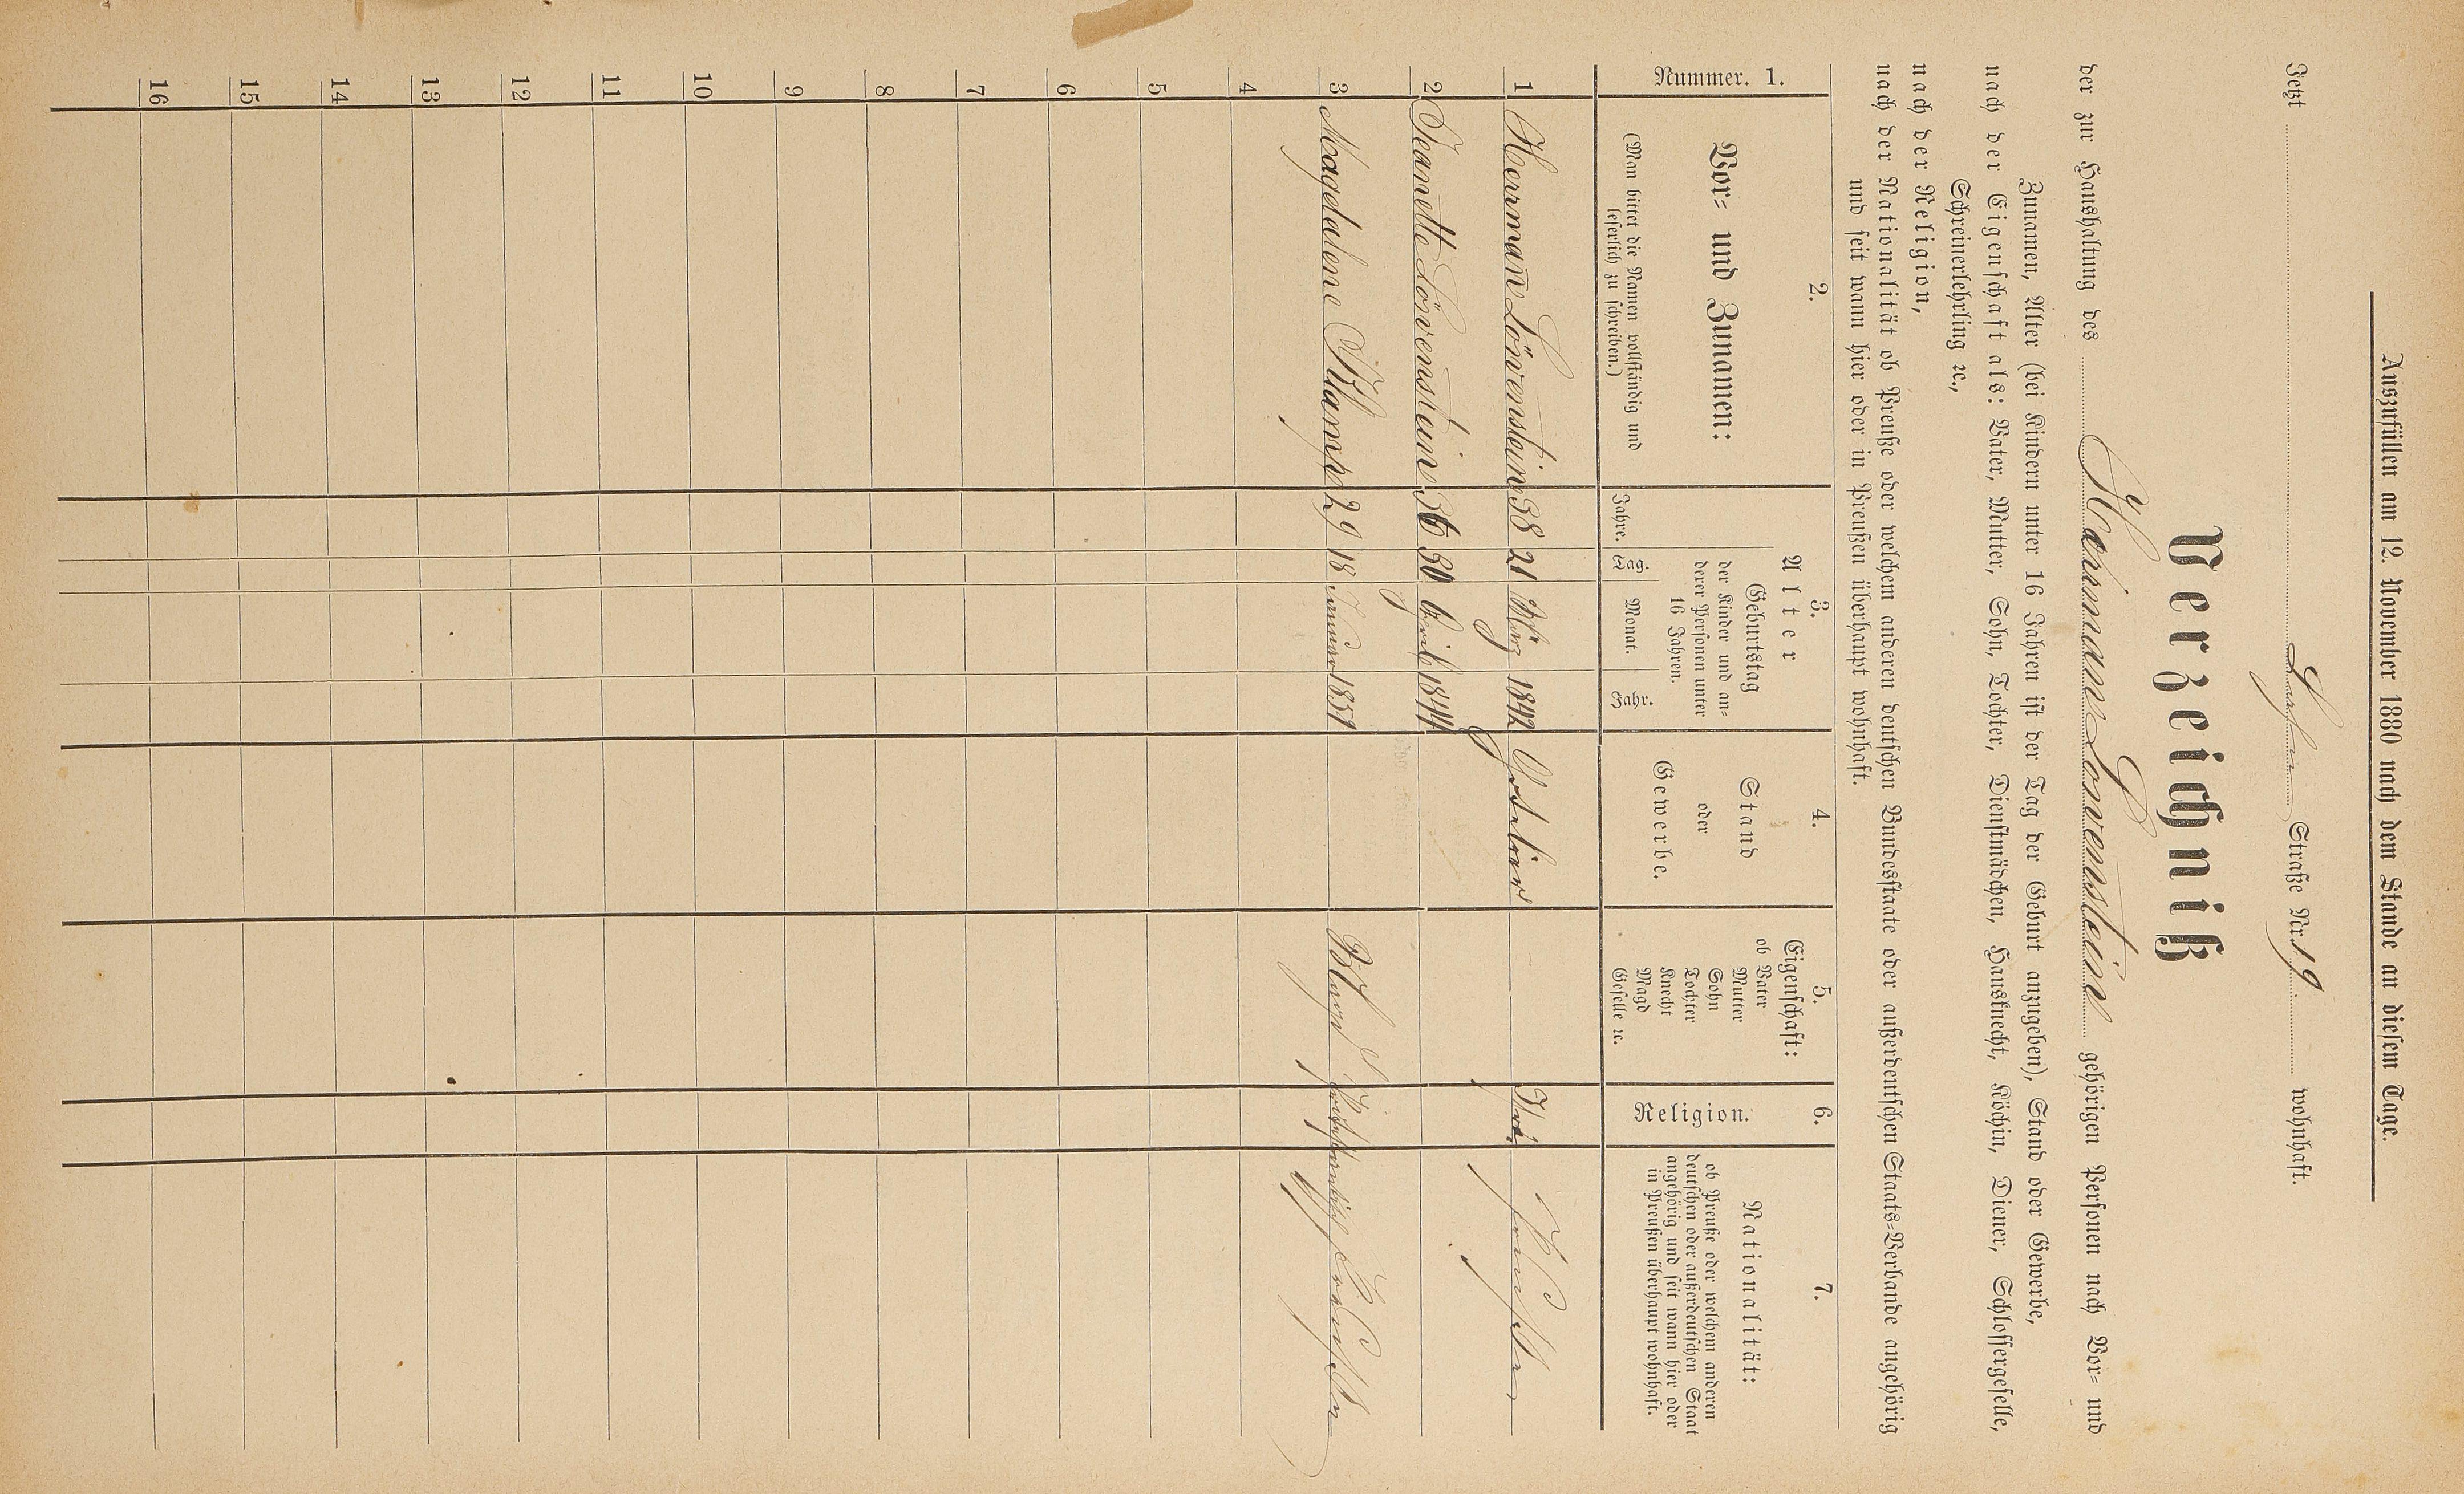 Auszufüllen am 12. November 1880 nach dem Stande an diesem Tage.
Jetzt Straße Nr. 19. wohnhaft.
Verzeichniß
der zur Haushaltung des Herrmann Lövenstein gehörigen Personen nach Vor- und
Zunamen, Alter (bei Kindern unter 16 Jahren ist der Tag der Geburt anzugeben), Stand oder Gewerbe,
nach der Eigenschaft als: Vater, Mutter, Sohn, Tochter, Dienstmädchen, Hausknecht, Köchin, Diener, Schlossergeselle,
Schreinerlehrling ꝛc.,
nach der Religion,
nach der Nationalität ob Preuße oder welchem anderen deutschen Bundesstaate oder außerdeutschen Staats-Verbande angehörig
und seit wann hier oder in Preußen überhaupt wohnhaft.
Nummer. 1.
2.
Vor- und Zunamen:
(Man bittet die Namen vollständig und
leserlich zu schreiben.)
3.
Alter
Jahre.
Geburtstag
der Kinder und an-
derer Personen unter
16 Jahren.
Tag.
Monat.
Jahr.
4.
Stand
oder
Gewerbe.
5.
Eigenschaft:
ob Vater
Mutter
Sohn
Tochter
Knecht
Magd
Geselle ꝛc.
6.
Religion.
7.
Nationalität:
ob Preuße oder welchem anderen
deutschen oder außerdeutschen Staat
angehörig und seit wann hier oder
in Preußen überhaupt wohnhaft.
1 Herrmañ Lövenstein 38 21 März 1842 Hotelier Isr. Preußen
2 Jeanette Lövenstein 36 30 April 1844
3 Magdalene 29 18 Januar 1851 Magd Preußen
4
5
6
7
8
9
10
11
12
13
14
15
16